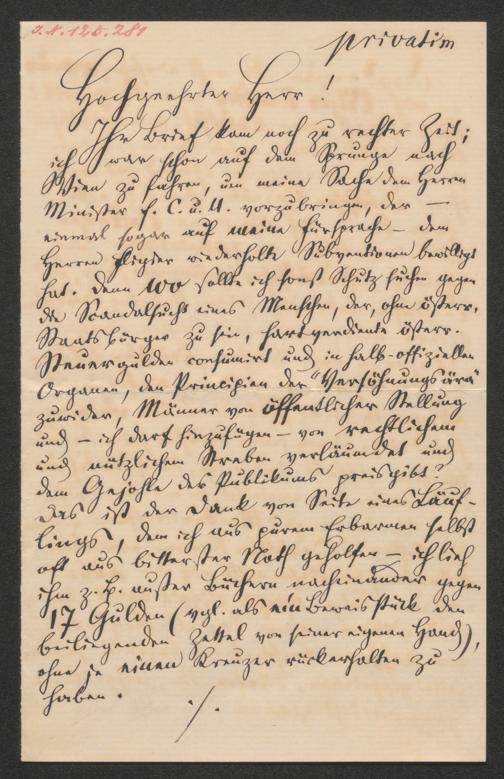 J.N. 125.281
privatim
Hochgeehrter Herr!
Ihr Brief kam noch zu rechter Zeit;
ich war schon auf dem Sprunge nach
Wien zu fahren, um meine Sache dem Herrn
Minister f. C. u. U. vorzubringen, der —
einmal sogar auf meine Fürsprache – dem
Herrn Fligier wiederholte Subventionen bewilligt
hat. Denn wo sollte ich sonst Schutz suchen gegen
die Scandalsucht eines Menschen, der, ohne österr.
Staatsbürger zu sein, hartverdiente österr.
Steuergulden consumirt und in halb-offiziellen
Organen, den Principien der "Versöhnungsära"
zuwider, Männer von öffentlicher Stellung
und – ich darf hinzufügen – von rechtlichem
und nützlichem Streben verläumdet und
dem Gejohle des Publikums preisgibt?
Das ist der Dank von Seite eines Läuf-
lings, dem ich aus purem Erbarmen selbst
oft aus bitterster Noth geholfen – ich lieh
ihm z. B. außer Büchern nacheinander gegen
17 Gulden (vgl. als ein Beweisstück den
beiliegenden Zettel von seiner eigenen Hand),
ohne je einen Kreuzer rückerhalten zu
haben.
./.